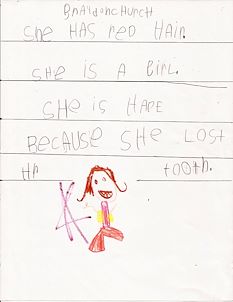 SHE HAS RED HAIR.
SHE iS A GiRL.
SHE is HAPE
BECAUSE SHE LOST
HR tooth.